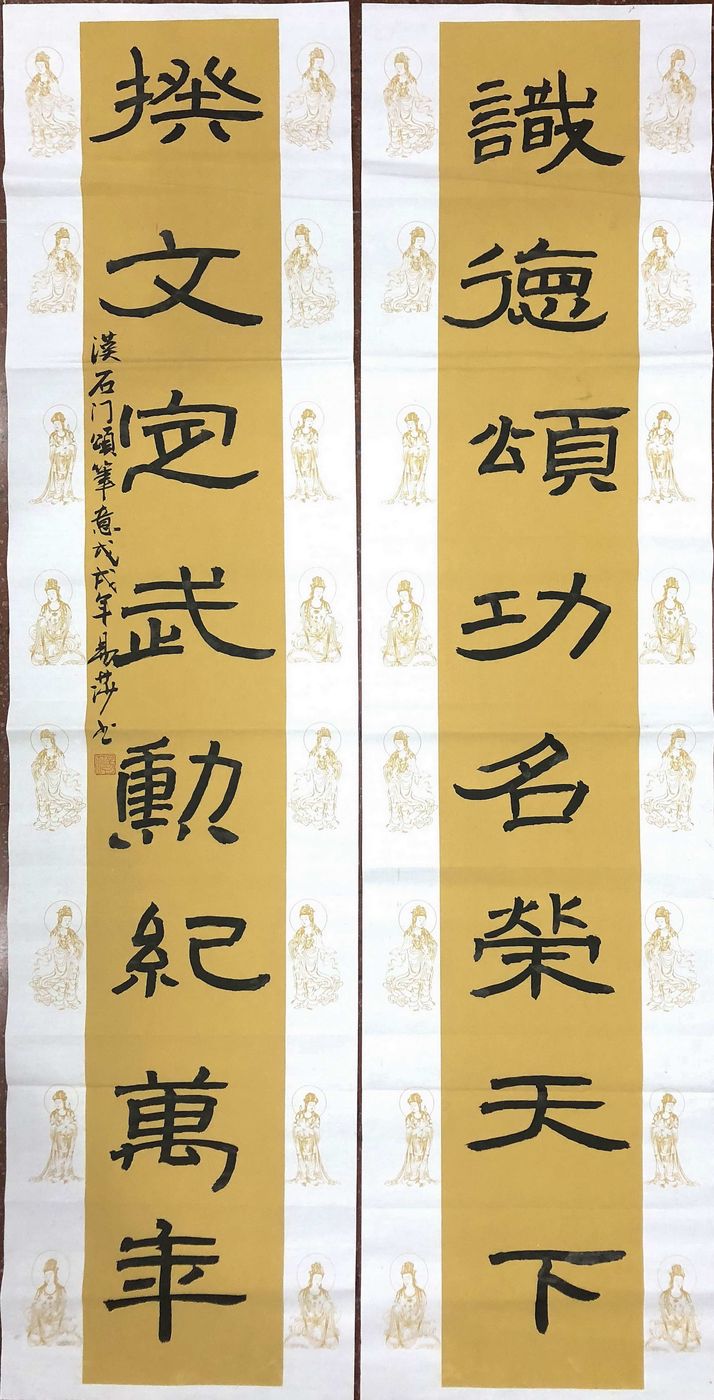 識德頌功名榮天下
撰文定武勳紀萬年
漢石门頌筆意戊戌年易莎书